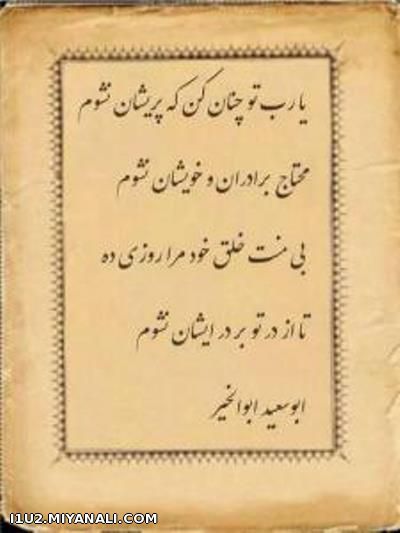 یا رب تو چنان کن که پریشان نشوم
محتاج برادران و خویشان نشوم
بی منت خلق خود مرا روزی ده
تا از در تو بر در ایشان نشوم
ابوسعید ابوالخیر
I1U2.MIYANALI.COM